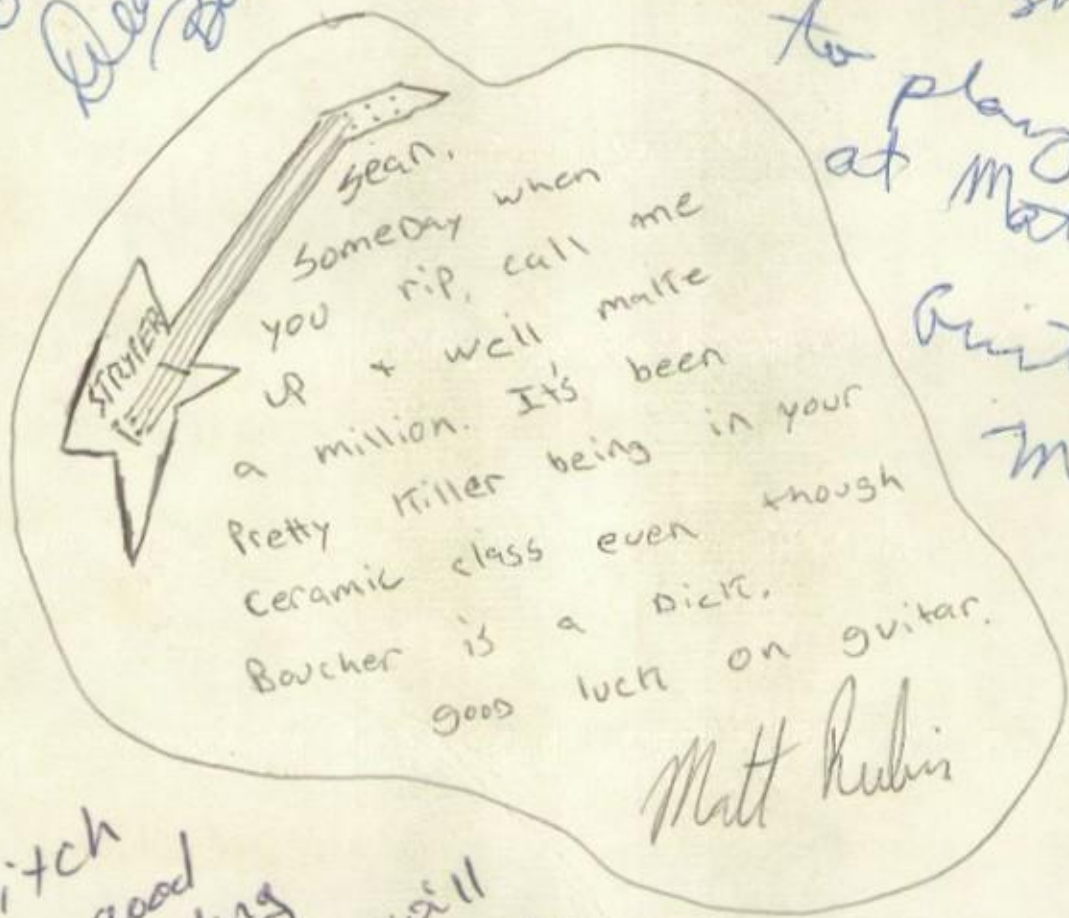 STRYPER
Sean,
SomeDay when
you rip, call me
up + well make
a million. It's been
Pretty Killer being in your
Ceramic class even though
Boucher is a Dick.
good luck on guitar.
Matt Rubin
to
at
itch
good
will